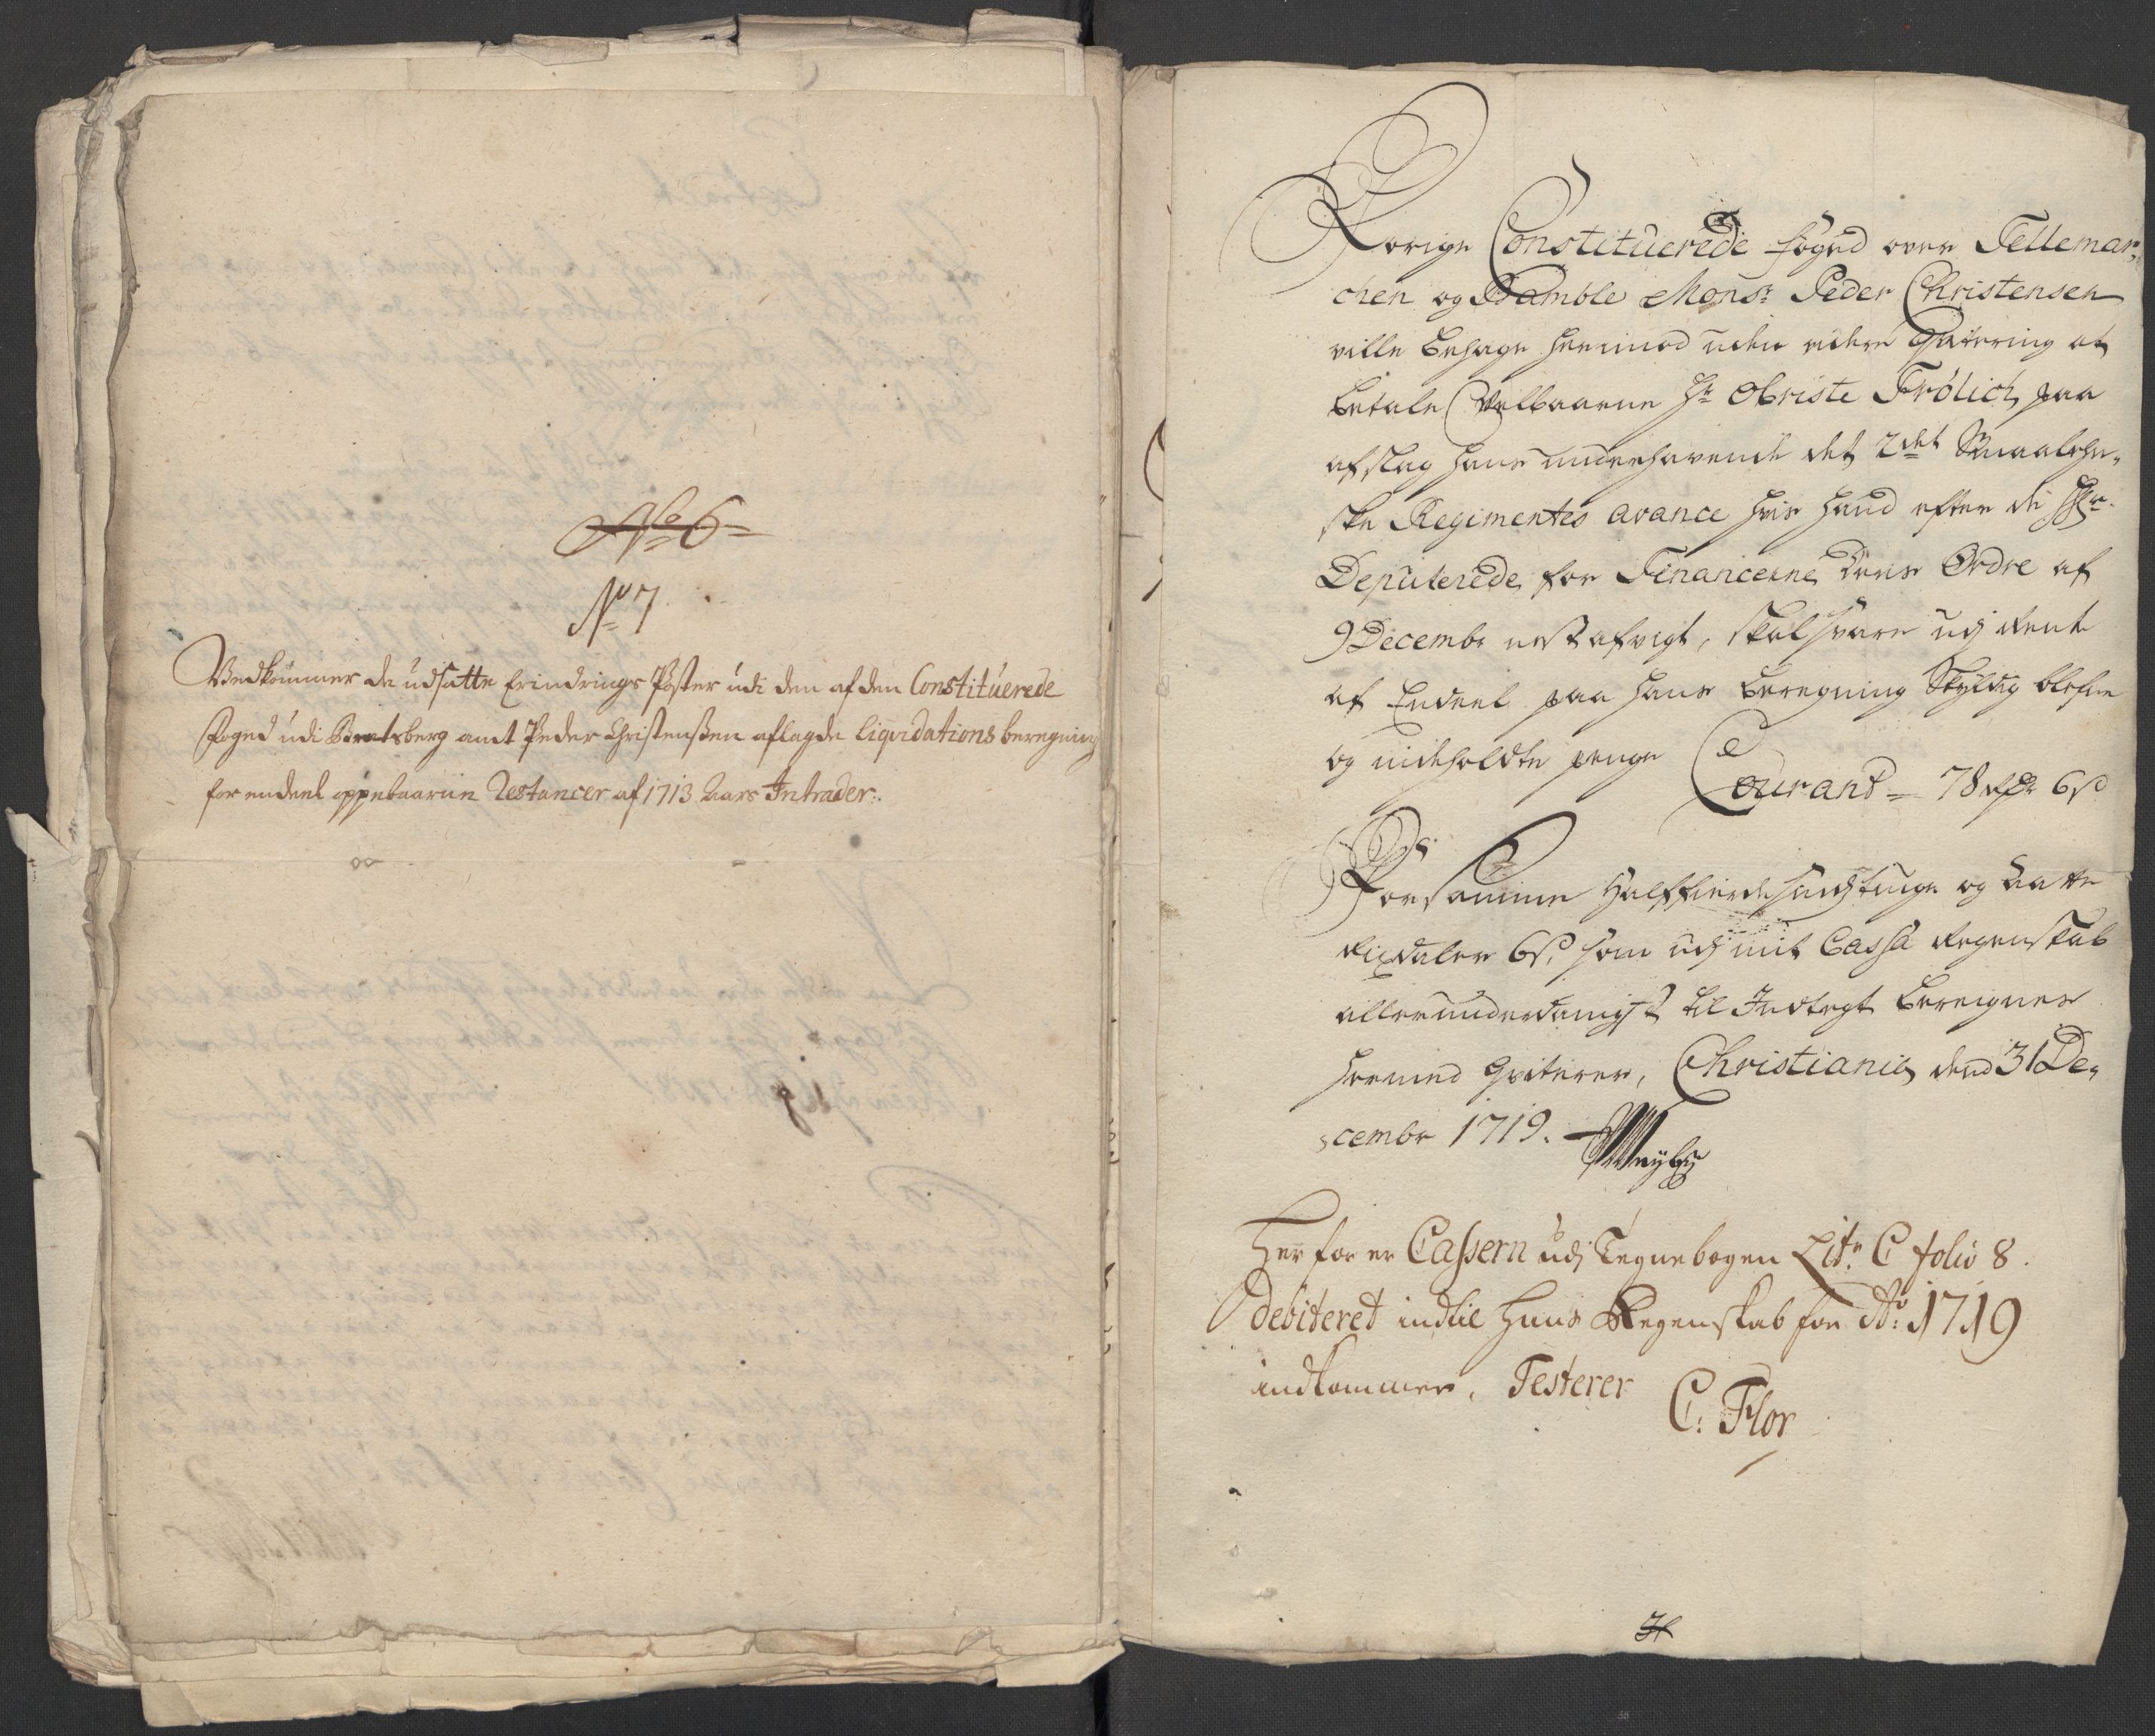 No 6
No 7
Vedkommer de udsatte Erindrings Poster udi den af den Constituerede
Foged udi Bratsberg amt Peder Christenßen aflagde liqvidations beregning
for endeel oppebaarne Restancer af 1713 Aars Intrader.
Forige Constituerede foged over Tellemar-
chen og Bamble Monsr: Peder Christensen
ville behage herimod uden videre Qvitering at
betale Velbaarne Hr Obriste Frölich, paa
afslag hans underhavende det 2det Smaalehn-
ske Regimentes avance hvis hand efter de Hhr.
Deputerede for Financerne deris Ordre af
9 Decembr nest afvigt, skal svare udj Rente
af Endeel paa hans beregning Skyldig blefne
og indeholdte penge
Courant = 78 rdr 6 s
For samme Halffierdesindstiuge og
Rixdaler 6 s, som udj mit Cassa Regenskab
allerunderdanigst til Indtegt bereignes
hermed Qviterer, Christiania dend 31 De-
cembr 1719.
Her for er Casseren udj Tegnebogen Litr C folio 8.
debiteret indtil hans Regenskab for Ao: 1719
indkommer, Testerer
C: Flor